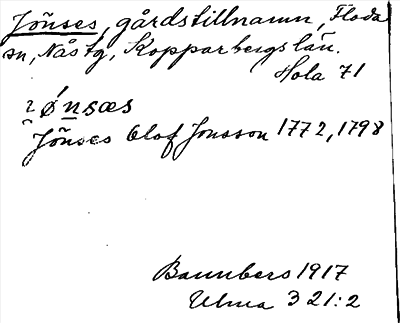 Jönses, gårdstillnamn, Floda
sn, Nås tg, Kopparbergs län.
Hola 71
ɿ ǿn̲sæs
Jönses Olof Jonsson 1772, 1798
Bannbers 1917
Ulma 321:2